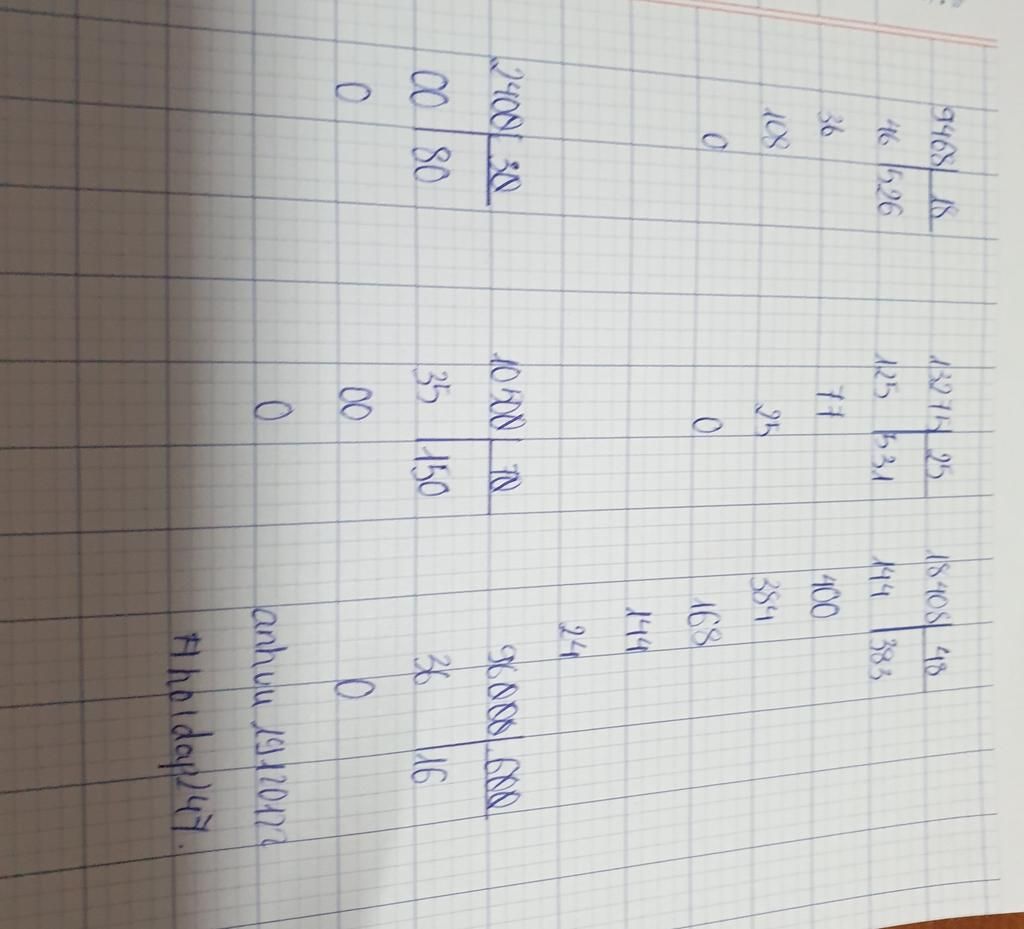 9468 | 18 13275 | 25 18408 | 48
46 | 526 125 | 531 144 | 383
36 77 400
108 25 384
0 0 168
144
24
2400 | 30 10500 | 70 96000 | 600
00 | 80 35 | 150 36 | 16
0 00 0
0 anhvuu 19120122
# hoidap247.